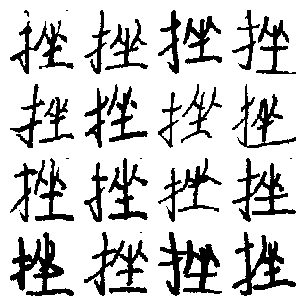 挫 挫 挫 挫
挫 挫 挫 挫
挫 挫 挫 挫
挫 挫 挫 挫